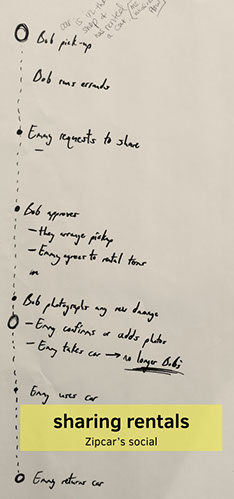 car is in the
shop +
not rented
a car
Bob pick-up
Bob runs errands
Emmy requests to share
Bob approves
- they arrange pickup
- Emmy agrees to rental terms
Bob photographs any new damage
- Emmy confirms or adds photos
- Emmy takes car → no longer Bob's
Emmy uses car
sharing rentals
Zipcar's social
Emmy returns car